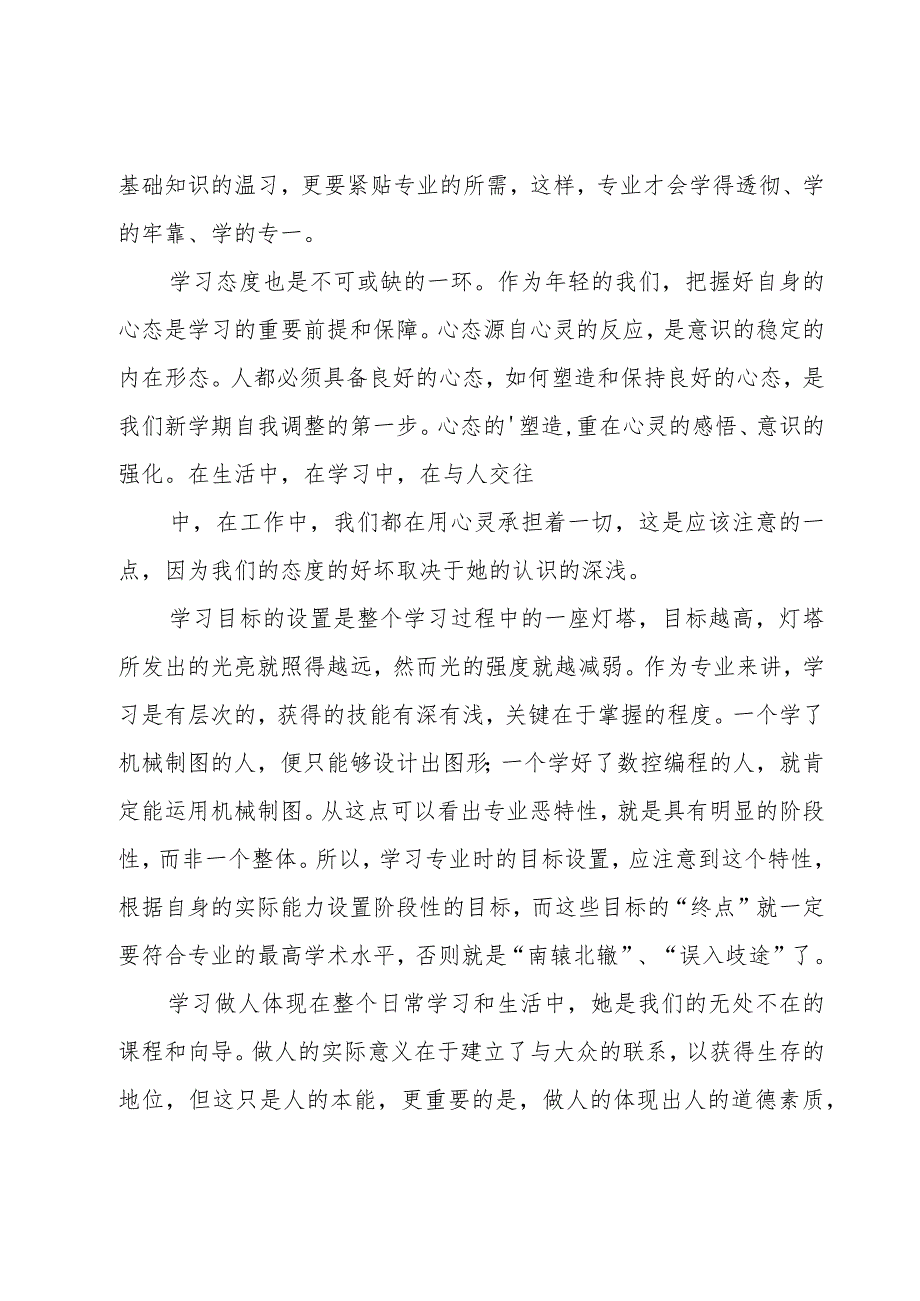 基础知识的温习，更要紧贴专业的所需，这样，专业才会学得透彻、学
的牢靠、学的专一。
学习态度也是不可或缺的一环。作为年轻的我们，把握好自身的
心态是学习的重要前提和保障。心态源自心灵的反应，是意识的稳定的
内在形态。人都必须具备良好的心态，如何塑造和保持良好的心态，是
我们新学期自我调整的第一步。心态的'塑造,重在心灵的感悟、意识的
强化。在生活中，在学习中，在与人交往
中，在工作中，我们都在用心灵承担着一切，这是应该注意的一
点，因为我们的态度的好坏取决于她的认识的深浅。
学习目标的设置是整个学习过程中的一座灯塔，目标越高，灯塔
所发出的光亮就照得越远，然而光的强度就越减弱。作为专业来讲，学
习是有层次的，获得的技能有深有浅，关键在于掌握的程度。一个学了
机械制图的人，便只能够设计出图形；一个学好了数控编程的人，就肯
定能运用机械制图。从这点可以看出专业恶特性，就是具有明显的阶段
性，而非一个整体。所以，学习专业时的目标设置，应注意到这个特性，
根据自身的实际能力设置阶段性的目标，而这些目标的“终点”就一定
要符合专业的最高学术水平，否则就是“南辕北辙”、“误入歧途”了。
学习做人体现在整个日常学习和生活中，她是我们的无处不在的
课程和向导。做人的实际意义在于建立了与大众的联系，以获得生存的
地位，但这只是人的本能，更重要的是，做人的体现出人的道德素质，